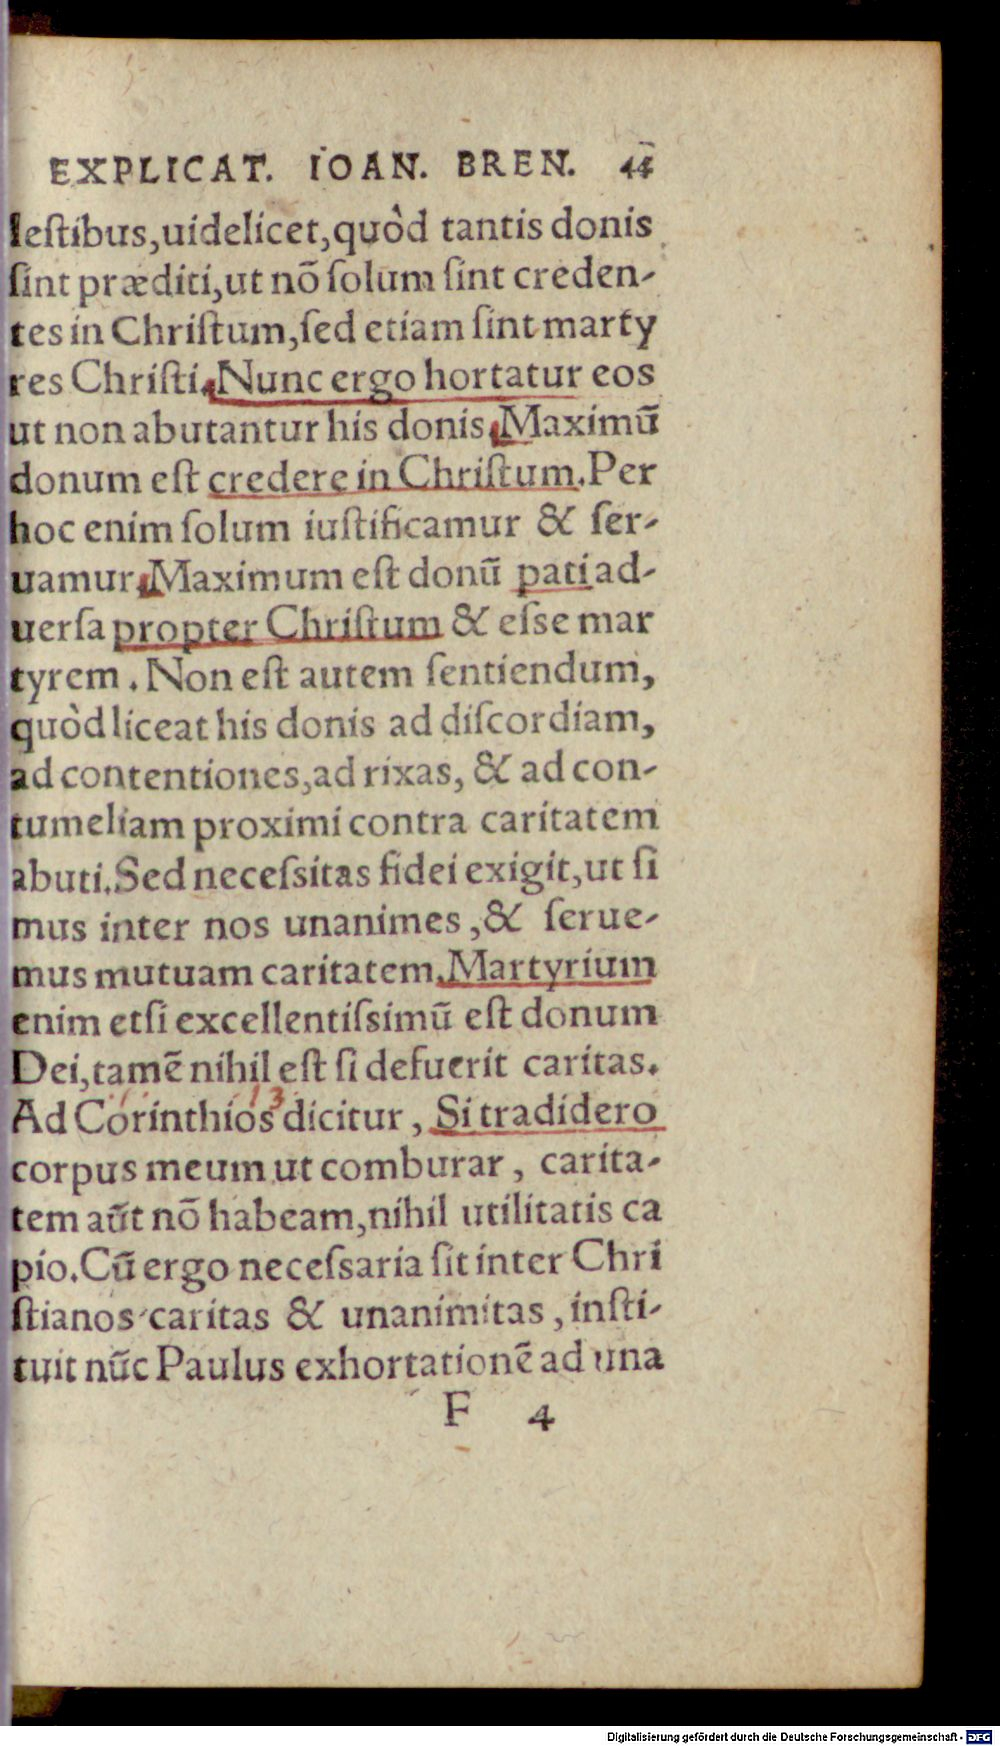 EXPLICAT. IOAN. BREN. 44
leſtibus,uidelicet,quòd tantis donis
ſint præditi,ut nõ ſolum ſint creden-
tes in Chriſtum,ſed etiam ſint marty
res Chriſti. Nunc ergo hortatur eos
ut non abutantur his donis. Maximũ
donum eſt credere in Chriſtum. Per
hoc enim ſolum iuſtificamur & ſer-
uamur. Maximum eſt donũ pati ad-
uerſa propter Chriſtum & eſſe mar
tyrem. Non eſt autem ſentiendum,
quòd liceat his donis ad diſcordiam,
ad contentiones,ad rixas, & ad con-
tumeliam proximi contra caritatem
abuti. Sed neceſsitas fidei exigit,ut ſi
mus inter nos unanimes ,& ſerue-
mus mutuam caritatem. Martyrium
enim etſi excellentiſsimũ eſt donum
Dei,tamẽ nihil eſt ſi defuerit caritas.
13.
Ad Corinthios dicitur , Si tradidero
corpus meum ut comburar , carita-
tem aũt nõ habeam,nihil utilitatis ca
pio. Cũ ergo neceſsaria ſit inter Chri
ſtianos caritas & unanimitas , inſti-
tuit nũc Paulus exhortationẽ ad una
F 4
Digitalisierung gefördert durch die Deutsche Forschungsgemeinschaft - DFG